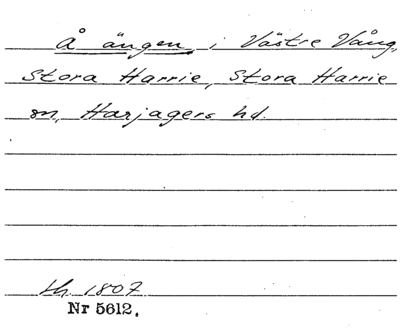 Å ängen, i Västre Vång,
Stora Harrie, Stora Harrie
sn, Harjagers hd.
1807
Nr 5612.